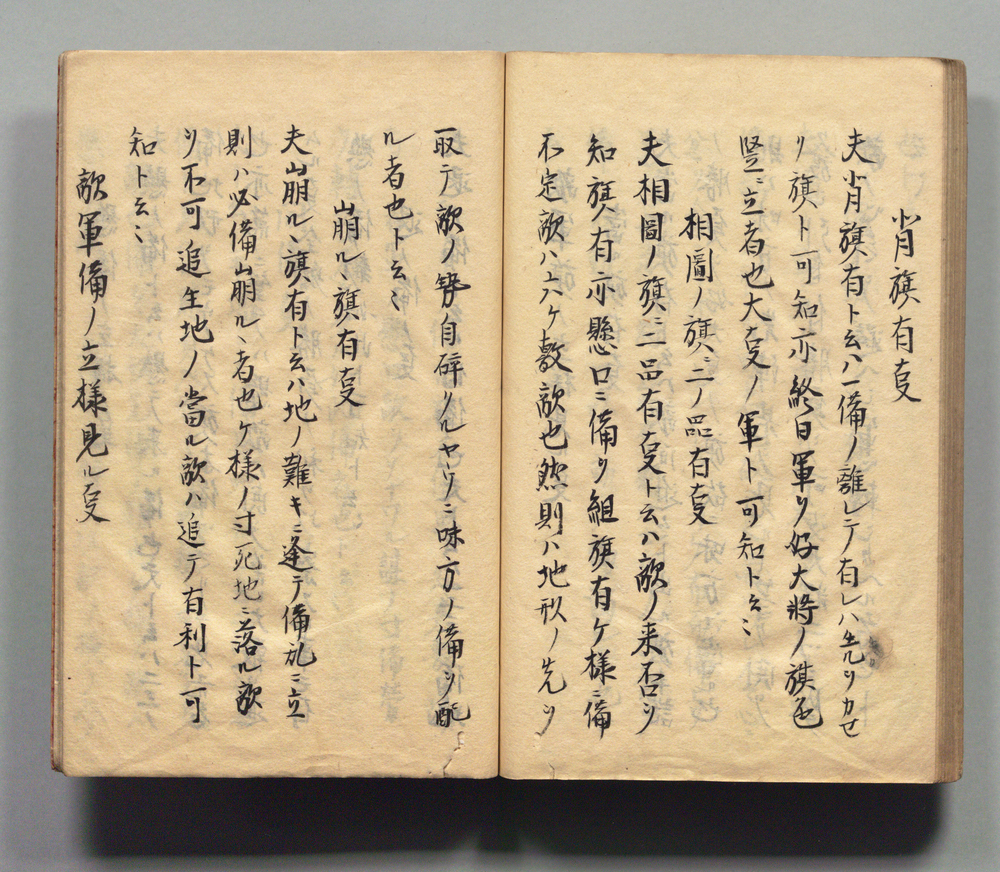 肖旗有叓
夫肖旗有ト云ハ一備ノ離レテ有レハ先ツカセ
リ旗ト可知亦終日軍ツ好大将ノ旗色
竪ニ立者也大叓ノ軍ト可知ト云〻
相圖ノ旗ニ二ノ品有叓
夫相圖ノ旗ニ二品有叓ト云ハ敵ノ来否ツ
知旗有亦懸口ニ備ツ組旗有ケ様ニ備
不定敵ハ六ケ敷敵也然則ハ地形ノ先ツ
取テ敵ノ勢自碎ツルヤリニ味方ノ備ツ配
ル者也ト云〻
崩ル旗有叓
夫崩ル丶旗有ト云ハ地ノ難キニ逢テ備乱ニ立
則ハ必備崩ル丶者也ケ様ノ寸死地ニ落ル敵
ツ不可追生地ノ當ル敵ハ追テ有利ト可
知ト云〻
敵軍備ノ立様見ル叓